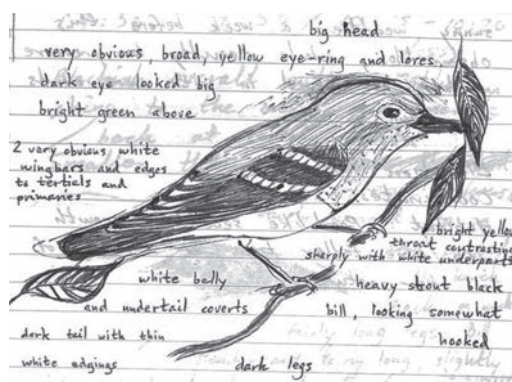 big head
very obvious, broad, yellow eye-ring and lores
dark eye looked big
bright green above
2 very obvious white
wingbars and edges
to tertials and
primaries
bright yellow
throat contrasting
sharply with white underparts
white belly
and undertail coverts
heavy stout black
bill, looking somewhat
hooked
dark tail with thin
white edgings
dark legs